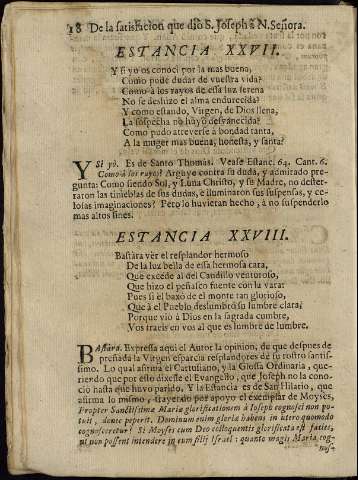 18 De la satisfacion que diò S. Joseph à N. Señora.
ESTANCIA XXVII.
Y si yo os conoci por la mas buena,
Como pude dudar de vuestra vida?
Como à los rayos de essa luz serena
No se deshizo el alma endurecida?
Y como estando, Virgen, de Dios llena,
La sospecha no huyò desvanecida?
Como pudo atreverse à bondad tanta,
A la muger mas buena, honesta, y santa?
Y Si yo. Es de Santo Thomàs. Vease Estanc. 64. Cant. 6.
Como à los rayos? Arguye contra su duda, y admirado pre-
gunta: Como siendo Sol, y Luna Christo, y su Madre, no dester-
raron las tinieblas de sus dudas, è iluminaron sus suspensas, y ce-
losas imaginaciones? Pero lo huvieran hecho, à no suspenderlo
mas altos fines.
ESTANCIA XXVIII.
Bastàra vèr el resplandor hermoso
De la luz bella de essa hermosa cara,
Que excede al del Caudillo venturoso,
Que hizo el peñasco fuente con la vara:
Pues si el baxò de el monte tan glorioso,
Que à el Pueblo deslumbrò su lumbre clara,
Porque viò à Dios en la sagrada cumbre,
Vos traeis en vos al que es lumbre de lumbre.
Bastàra. Expressa aqui el Autor la opinion, de que despues de
preñada la Virgen esparcia resplandores de su rostro santis-
simo. Lo qual afirma el Cartusiano, y la Glossa Ordinaria, que-
riendo que por esto dixesse el Evangelio, que Joseph no la cono-
ciò hasta que huvo parido. Y la Estancia es de San Hilario, que
afirma lo mismo, trayendo por apoyo el exemplar de Moyses,
Propter Sanctissimæ Mariæ glorificationem à Joseph cognosci non po-
tuit, donec peperit. Dominum enim gloriæ habens in utero quomodo
cognosceretur? Si Moyses cum Deo colloquentis glorificata est facies,
ut non possent intendere in eum filij Israel: quanto magis Maria cog-